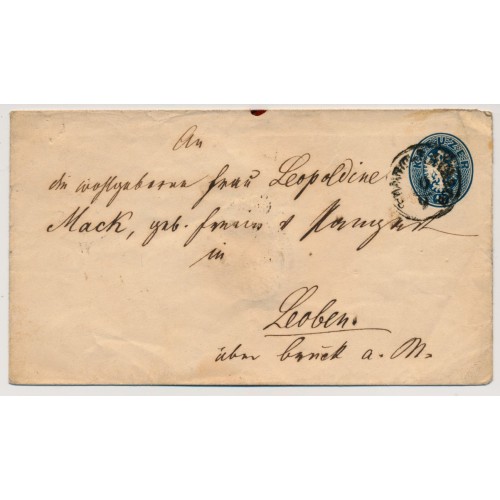 An
die wohlgeborne Frau Leopoldine
Mack, geb. Freiin v
in
Leoben
über Bruck a. M.